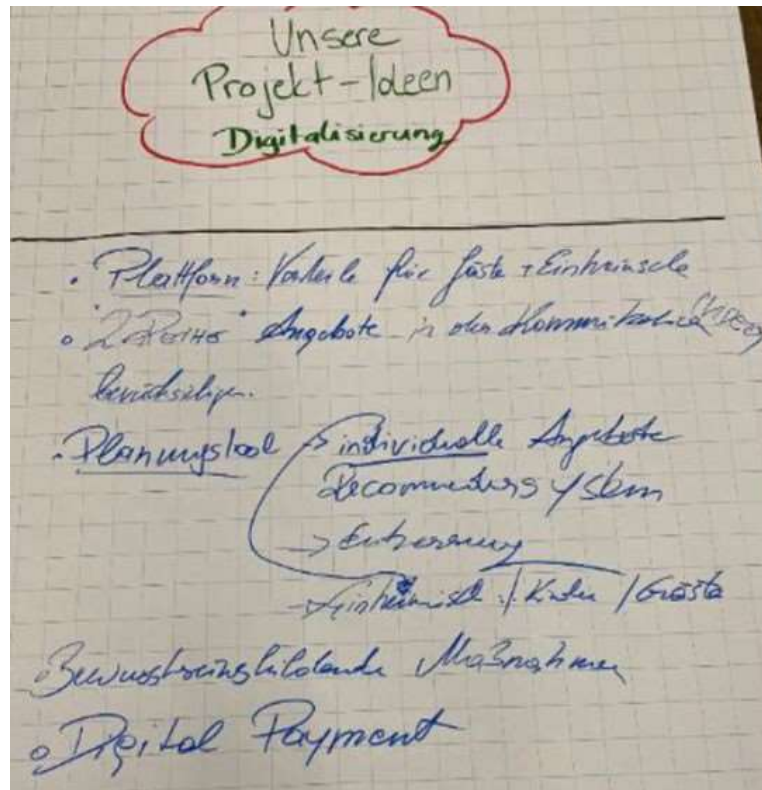 Unsere
Projekt-Ideen
Digitalisierung
• Plattform: Vorteile für Gäste + Einheimische
• "2. Reihe" Angebote in der Kommunikation
berücksichtigen.
• Planungstool → individuelle Angebote
Recommendersystem
→ Entfernung
→ Einheimisch / Kinder / Gäste
• Bewusstseinsbildende Maßnahmen
• Digital Payment